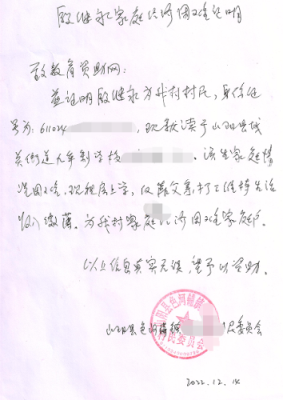 殷继永家庭经济困难证明
致教育资助网:
兹证明殷继永为我村村民,身份证
号为:61024 现就读于山阳县城
关街道九年制学校 。该生家庭情
况困难,现租房上学,仅靠父亲打工维持生活
收入微薄。为我村家庭经济困难家庭户。
以上信息真实无误,望予以资助。
山阳县色河铺镇 民委员会
2022.12.14